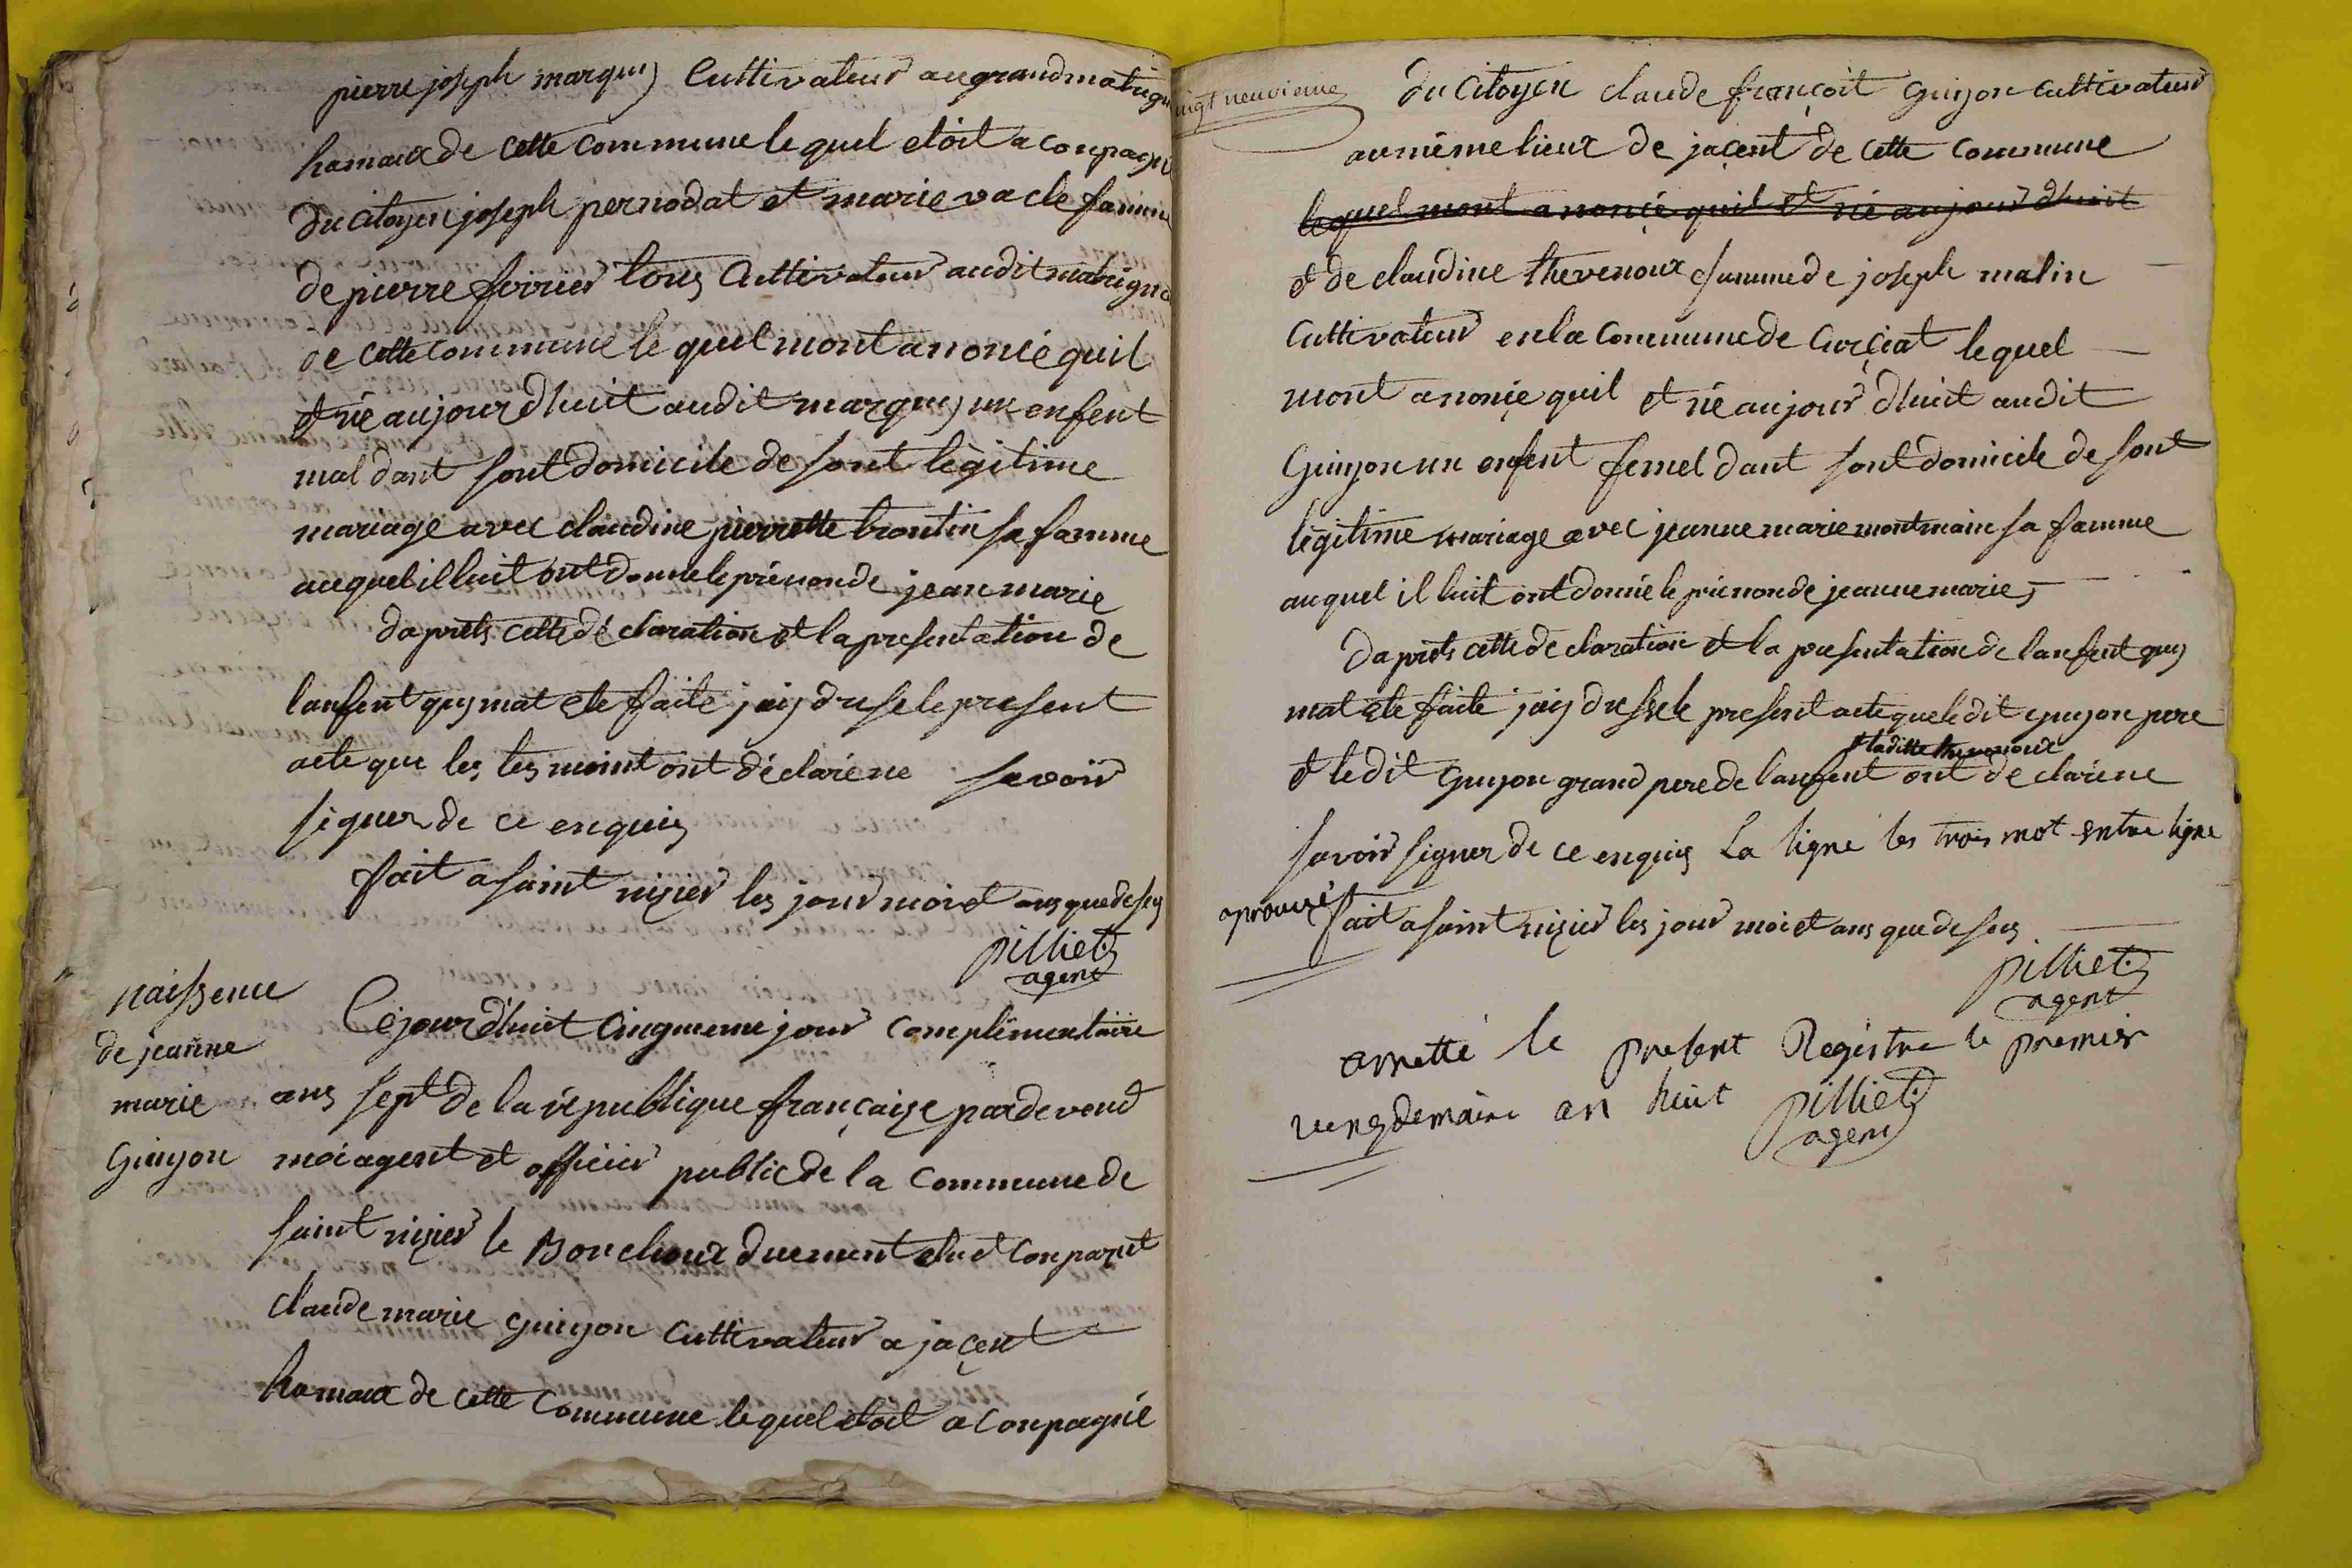 pierre joseph marquis Cultivateur au grand matign
hamaux de cette commune le quel etoit a conpagn
du citoyen joseph pernodat et marie vacle famme
de pierre foirier tous Cultivateur audit matigna
de cette commune le quel mont anoncé quil
et né aujourdhuit audit marquis un enfent
mal dant sont domicile de sont légitime
mariage avec claudine pierrette brontin sa famme
auquel il luit ont donné le prénon de jean marie
daprêts cette déclaration et la presentation de
lanfent quy mat ete faite jaiy dresse le present
acte que les tesmoint ont déclaré ne savoir
signer de ce enquis
fait a saint nizier les jour moi et ans que desus
pilliet
agent
naissence
de jeanne
marie
Guiyon
Cejourdhuit cinquieme jour complimentaire
ans sept de la république française pardevend
moi agent et officier public de la commune de
saint nizier le Bouchoux duement elu et conparut
claude marie guiyon Cultivateur a jaçent
hamaux de cette commune le quel etoit a conpagné
ingt neuvieme
du Citoyen claude françoit guiyon cultivateur
au même lieux de jaçent de cette commune
lequel mont anonçé quil et né aujourdhuit
et de claudine thevenoux famme de joseph matin
Cultivateur en la commune de Curçiat le quel
mont anonçé quil et né aujourdhuit audit
Guiyon un enfent femel dant sont domicile de sont
légitime mariage avec jeanne marie montmain sa famme
auquel il luit ont donné le prénon de jeanne marie
daprêts cette declaration et la presentation de lanfent quy
mat ete faite jaiy dressé le present acte que le dit guiyon pere
et laditte thevenoux
et le dit guyon grand pere de lanfent ont declaré ne
savoir signer de ce enquis La ligne les trois mot entre ligne
aprouvé
fait a saint nizier les jour moi et ans que de sus
pilliet
agent
arretté le present Régistre le premier
vengdemaire an huit pilliet
agent